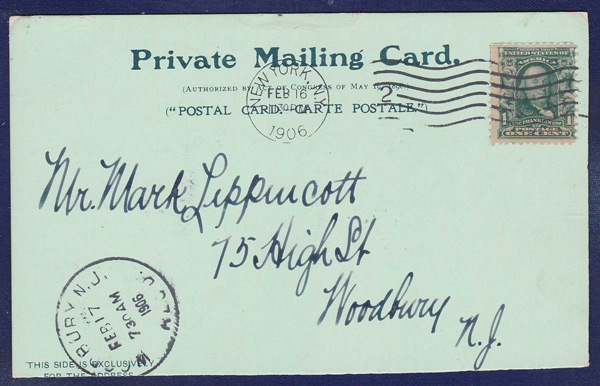 Private Mailing Card.
(AUTHORIZED BY ACT OF CONGRESS OF MAY 19, 1898.)
("POSTAL CARD-CARTE POSTALE.")
NEW YORK, N.Y.
FEB 16
1906
2
UNITED STATES OF
AMERICA
FRANKLIN
1 1
POSTAGE
ONE CENT
Mr. Mark Lippincott
75 High St
Woodbury
N.J.
BURY N.J.
FEB 17
730AM
1906
THIS SIDE IS EXCLUSIVELY
FOR THE ADDRESS